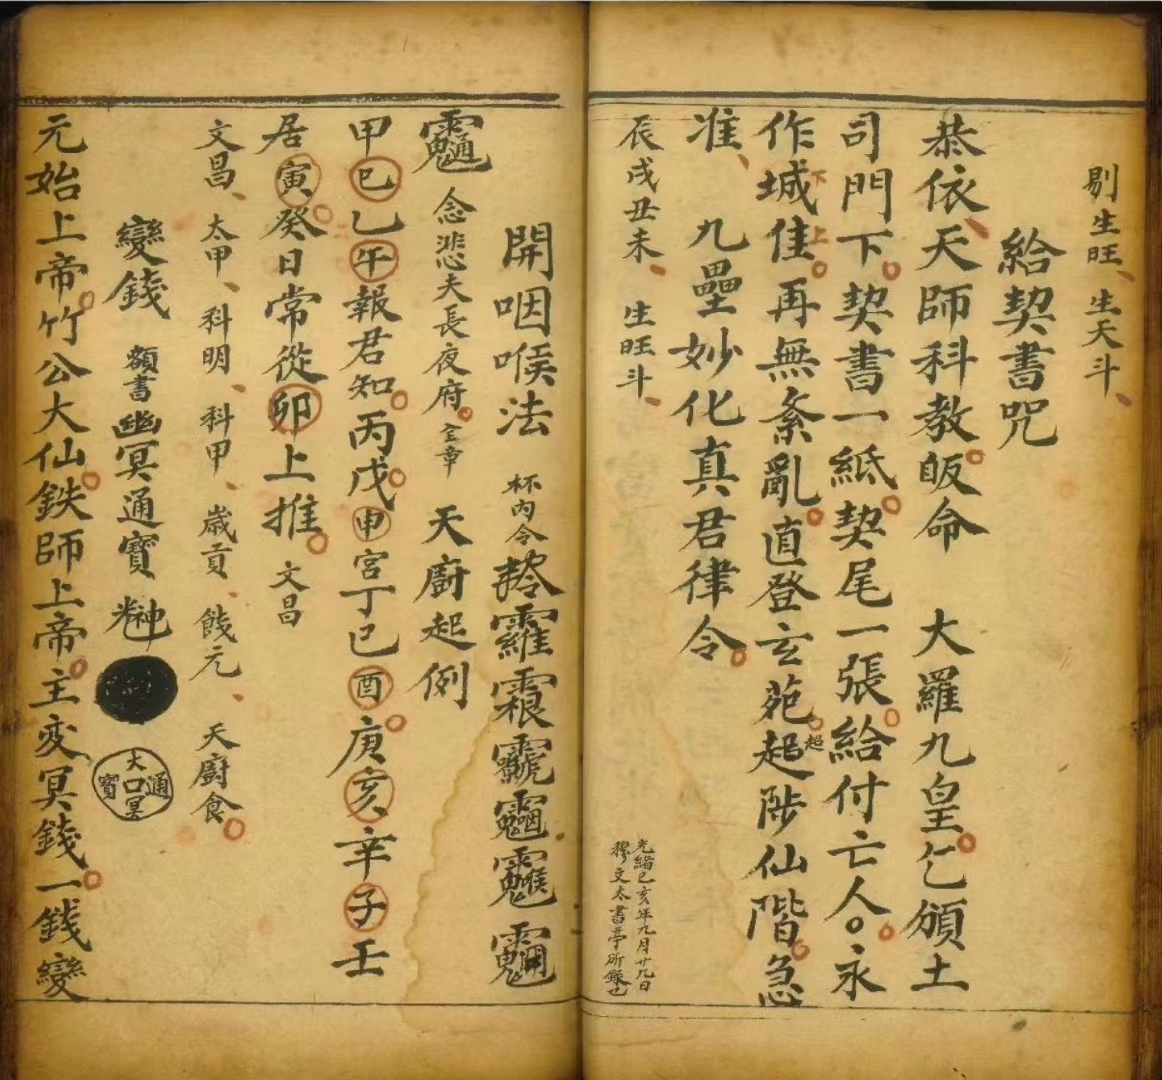 剔生旺、生天斗、
給契書咒
恭依、天師科教皈命　大羅九皇乞頒土
司門下契書一紙契尾一張給付亡人永
作城佳再無紊亂直登玄苑起陟仙階急
下上
超
准、九壘妙化真君律令
辰戌丑未、生旺斗、
光緒己亥年九月廿九日
穆文太書亭所錄也
開咽喉法　杯內令
念悲夫長夜府　天廚起例
甲巳乙午報君知丙戊申宮丁巳酉庚亥辛子壬
居寅癸日常從卯上推　文昌
文昌、太甲、科明、科甲、歲貢、餞元、天廚食
變錢　額書幽冥通寶
大口冥通寶
元始上帝竹公大仙鉄師上帝主变冥錢一錢變